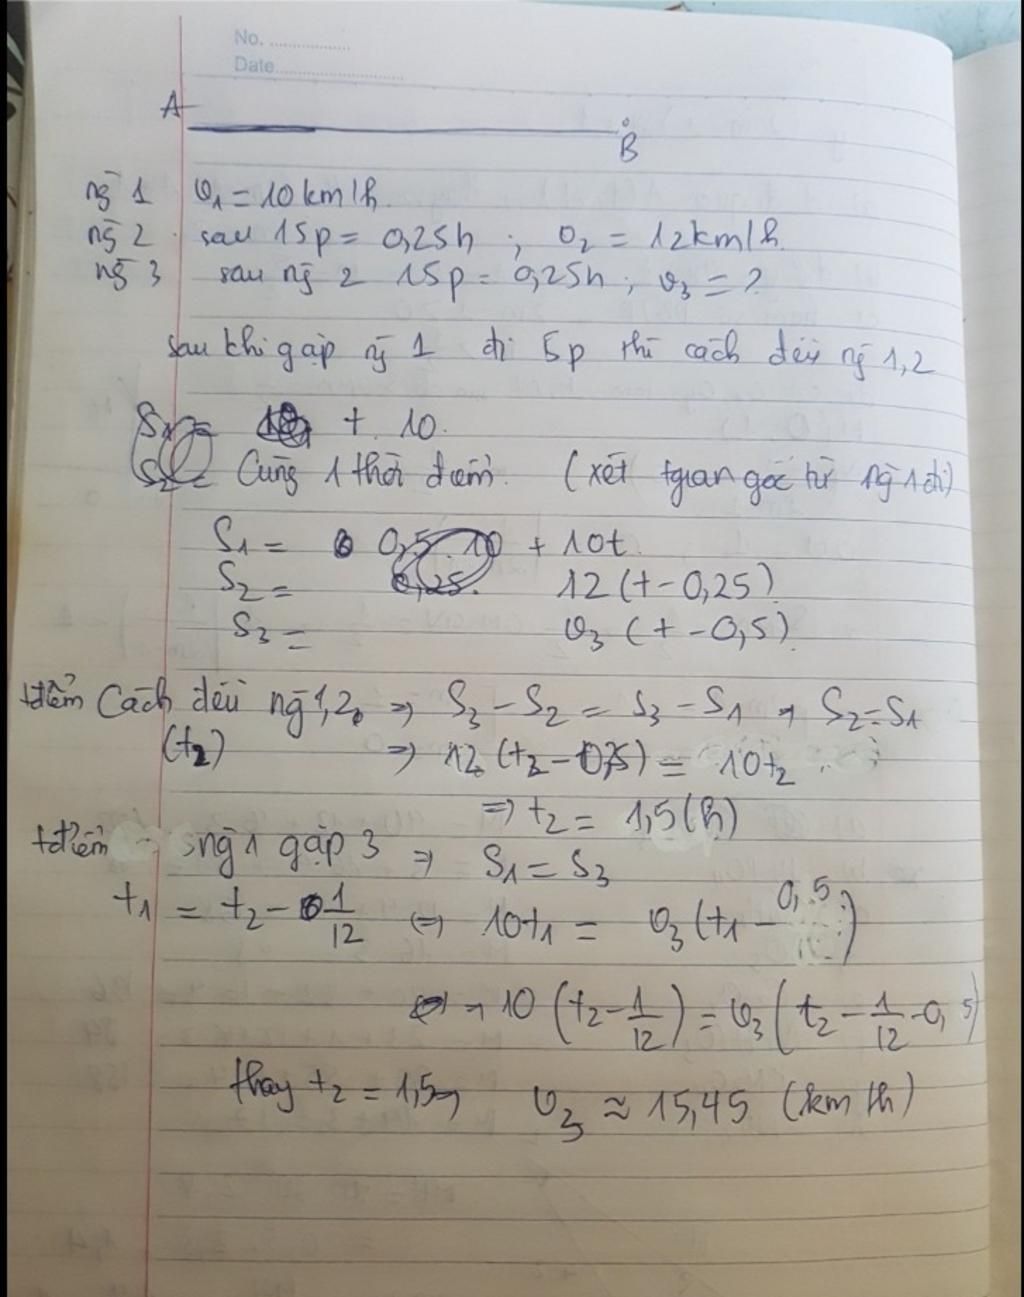 No. ....................
Date................................
A
B
ng̃ 1 v₁ = 10 km/h.
ng̃ 2 sau 15p = 0,25h ; v₂ = 12km/h.
ng̃ 3 sau ng̃ 2 15p = 0,25h ; v₃ = ?
sau khi gặp ng̃ 1 đi 5p thì cách đều ng̃ 1,2
+ 10.
Cùng 1 thời điểm. (xét tgian gốc từ ng̃ 1 đi)
S₁ = 0,5 . 10 + 10t
S₂ = 0,25. 12(t-0,25)
S₃ = v₃ (t-0,5)
tđiểm Cách đều ng̃ 1,2 ⇒ S₃ - S₂ = S₃ - S₁ → S₂ = S₁
(t₂) ⇒ 12 (t₂ - 0,25) = 10t₂
⇒ t₂ = 1,5(h)
tđiểm ng̃ 1 gặp 3 ⇒ S₁ = S₃
t₁ = t₂ - 1/12 ⇔ 10t₁ = v₃ (t₁ - 0,5)
→ 10 (t₂ - 1/12) = v₃ (t₂ - 1/12 - 0,5)
thay t₂ = 1,5 → v₃ ≈ 15,45 (km/h)